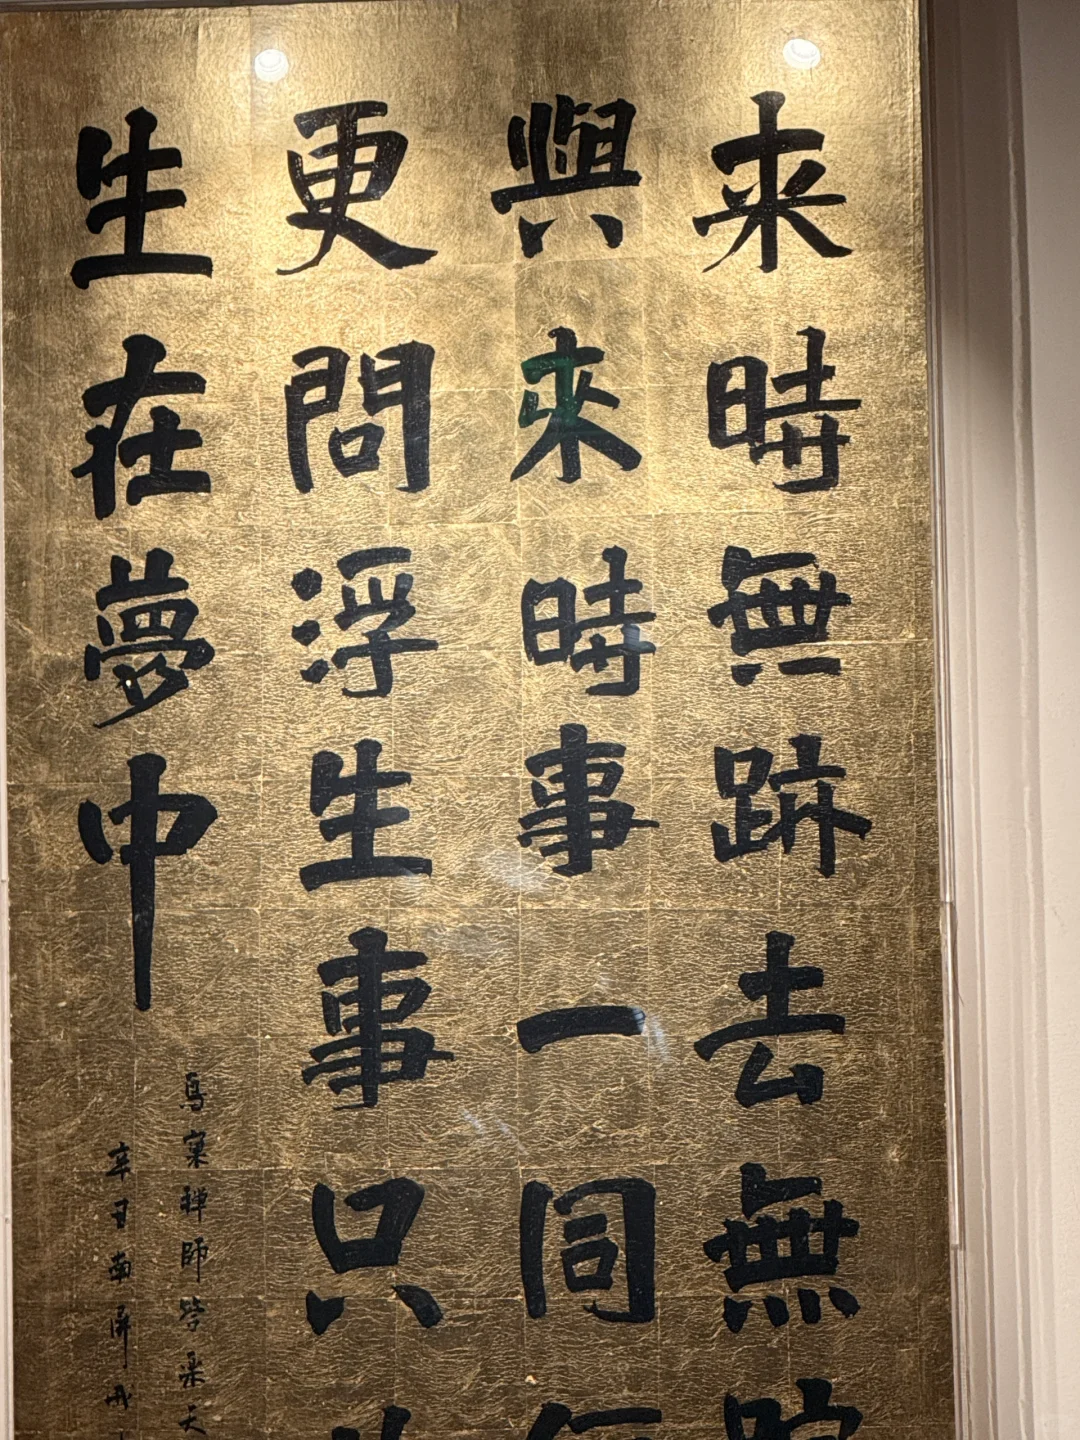 来時無跡去無
與來時事一同
更問浮生事只
生在夢中
鳥窠禪師
辛丑南屏